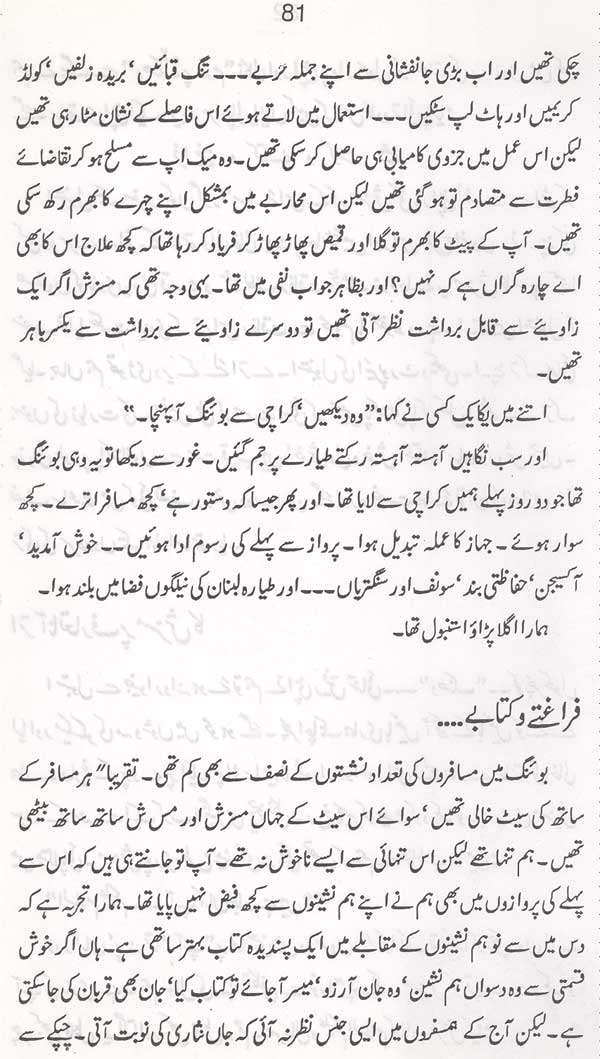 81
چکی تھیں اور اب بڑی جانفشانی سے اپنے جملہ حربے۔۔۔ تنگ قبائیں‘ بریدہ زلفیں‘ کولڈ
کریمیں اور ہاٹ لپ سٹکیں۔۔۔ استعمال میں لاتے ہوئے اس فاصلے کے نشان مٹا رہی تھیں
لیکن اس عمل میں جزوی کامیابی ہی حاصل کر سکی تھیں۔ وہ میک اپ سے مسلح ہو کر تقاضائے
فطرت سے متصادم تو ہو گئی تھیں لیکن اس محاربے میں بمشکل اپنے چہرے کا بھرم رکھ سکی
تھیں۔ آپ کے پیٹ کا بھرم تو گلا اور قمیض پھاڑ پھاڑ کر فریاد کر رہا تھا کہ کچھ علاج اس کا بھی
اے چارہ گراں ہے کہ نہیں؟ اور بظاہر جواب نفی میں تھا۔ یہی وجہ تھی کہ مسز ش اگر ایک
زاویئے سے قابل برداشت نظر آتی تھیں تو دوسرے زاویئے سے برداشت سے یکسر باہر
تھیں۔
اتنے میں یکایک کسی نے کہا: ”وہ دیکھیں‘ کراچی سے بوئنگ آ پہنچا۔“
اور سب نگاہیں آہستہ آہستہ رکتے طیارے پر جم گئیں۔ غور سے دیکھا تو یہ وہی بوئنگ
تھا جو دو روز پہلے ہمیں کراچی سے لایا تھا۔ اور پھر جیسا کہ دستور ہے‘ کچھ مسافر اترے۔ کچھ
سوار ہوئے۔ جہاز کا عملہ تبدیل ہوا۔ پرواز سے پہلے کی رسوم ادا ہوئیں۔۔ خوش آمدید‘
آکسیجن‘ حفاظتی بند‘ سونف اور سنگتریاں۔۔۔ اور طیارہ لبنان کی نیلگوں فضا میں بلند ہوا۔
ہمارا اگلا پڑاؤ استنبول تھا۔
فراغتے و کتابے....
بوئنگ میں مسافروں کی تعداد نشستوں کے نصف سے بھی کم تھی۔ تقریبا" ہر مسافر کے
ساتھ کی سیٹ خالی تھیں‘ سوائے اس سیٹ کے جہاں مسز ش اور مس ش ساتھ ساتھ بیٹھی
تھیں۔ ہم تنہا تھے لیکن اس تنہائی سے ایسے ناخوش نہ تھے۔ آپ تو جانتے ہی ہیں کہ اس سے
پہلے کی پروازوں میں بھی ہم نے اپنے ہم نشینوں سے کچھ فیض نہیں پایا تھا۔ ہمارا تجربہ ہے کہ
دس میں سے نو ہم نشینوں کے مقابلے میں ایک پسندیدہ کتاب بہتر ساتھی ہے۔ ہاں اگر خوش
قسمتی سے وہ دسواں ہم نشین‘ وہ جان آرزو‘ میسر آ جائے تو کتاب کیا‘ جان بھی قربان کی جا سکتی
ہے۔ لیکن آج کے ہمسفروں میں ایسی جنس نظر نہ آئی کہ جاں نثاری کی نوبت آتی۔ چپکے سے